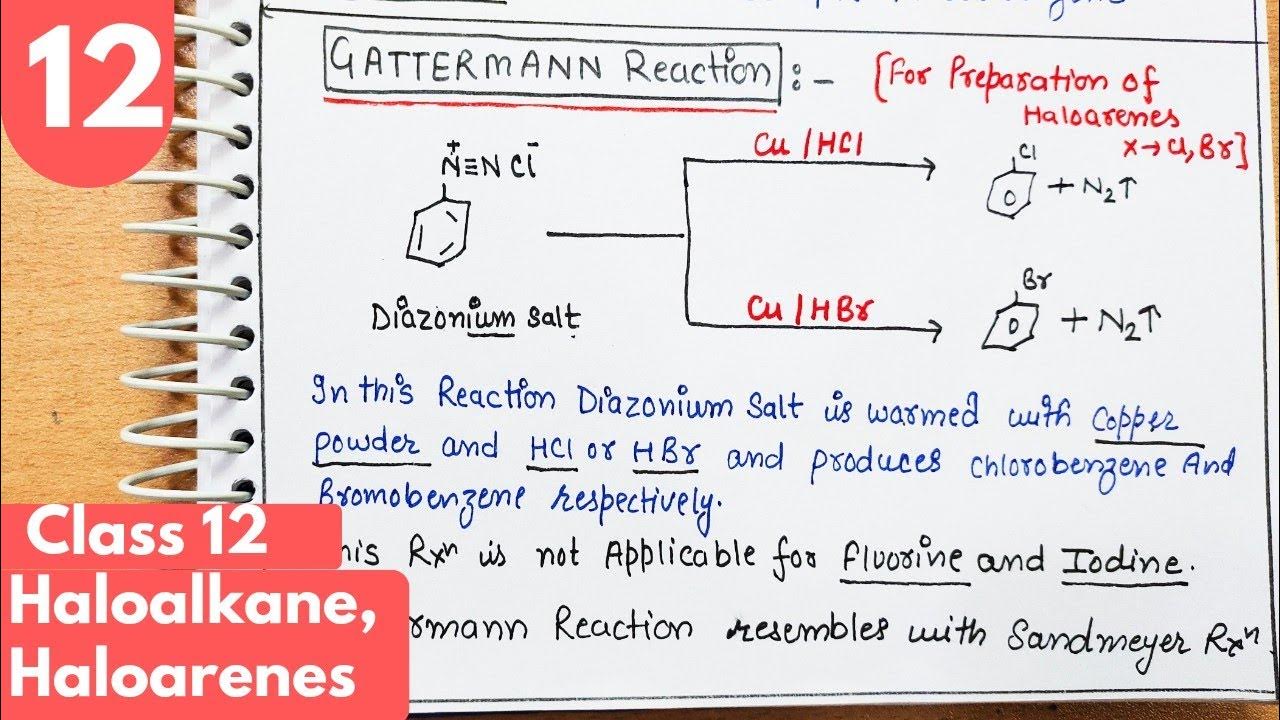 12
GATTERMANN Reaction :- [For Preparation of
Haloarenes
X→Cl, Br]
Cu / HCl
N⁺≡N Cl⁻
Cl
+ N₂↑
Diazonium salt
Cu / HBr
Br
+ N₂↑
In this Reaction Diazonium salt is warmed with Copper
powder and HCl or HBr and produces chlorobenzene And
Bromobenzene respectively.
his Rxⁿ is not Applicable for fluorine and Iodine.
rmann Reaction resembles with Sandmeyer Rxⁿ.
Class 12
Haloalkane,
Haloarenes